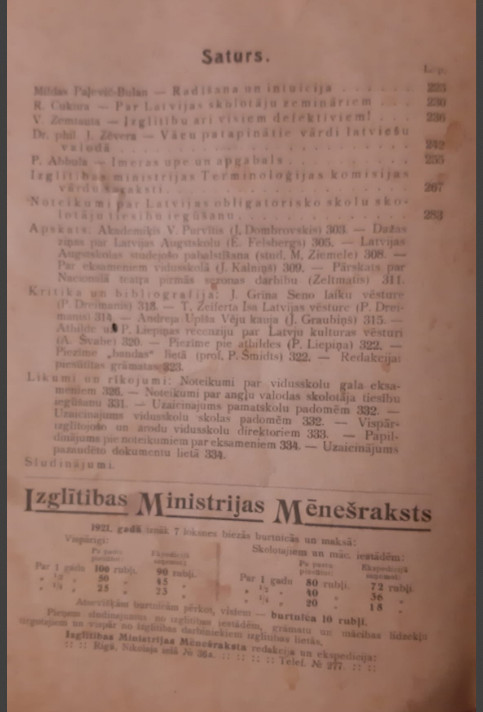 Saturs.
L. p.
Mildas Paļevič-Bulan — Radīšana un intuicija . . . . . . . 223
R. Cukura — Par Latvijas skolotāju semināriem . . . . 230
V. Zemzanta — Izglītību arī visiem defektīviem! . . . 236
Dr. phil. J. Zēvera — Vācu patapinātie vārdi latviešu
valodā . . . . . . . . . . . . 242
P. Abbula — Imeras upe un apgabals . . . . . . . . 255
Izglītības ministrijas Terminoloģijas komisijas
vārdu saraksti . . . . . . . . . . . 267
Noteikumi par Latvijas obligatorisko skolu sko-
lotāju tiesību iegūšanu . . . . . . . . . . 283
Apskats. Akadēmiķis V. Purvītis (J. Dombrovskis) 303. — Dažas
ziņas par Latvijas Augstskolu (E. Felsbergs) 305. — Latvijas
Augstskolas studējošo pabalstīšana (stud. M. Ziemele) 308. —
Par eksameniem vidusskolā (J. Kalniņš) 309. — Pārskats par
Nacionālā teatra pirmās sezonas darbību (Zeltmatis) 311.
Kritika un bibliografija: J. Grīna Seno laiku vēsture
(P. Dreimanis) 318. — T. Zeiferta Īsa Latvijas vēsture (P. Drei-
manis) 314. — Andreja Upīša Vēju kauja (J. Graubiņš) 315. —
Atbilde uz P. Liepiņas recenziju par Latvju kulturas vēsturi
(A. Švābe) 320. — Piezīme pie atbildes (P. Liepiņa) 322. —
Piezīme „bandas" lietā (prof. P. Šmidts) 322. — Redakcijai
piesūtītas grāmatas 323.
Likumi un rīkojumi: Noteikumi par vidusskolu gala eksa-
meniem 326. — Noteikumi par angļu valodas skolotāja tiesību
iegūšanu 331. — Uzaicinājums pamatskolu padomēm 332. —
Uzaicinājums vidusskolu skolas padomēm 332. — Vispār-
izglītojošo un arodu vidusskolu direktoriem 333. — Papil-
dinājums pie noteikumiem par eksameniem 334. — Uzaicinājums
pazudēto dokumentu lietā 334.
Studinājumi.
Izglītības Ministrijas Mēnešraksts
1921. gadā iznāk 7 loksnes biezās burtnīcās un maksā:
Vispārīgi:
Skolotājiem un māc. iestādēm:
Pa pastu piesūtot: Ekspedicijā saņemot:
Pa pastu piesūtot: Ekspedicijā saņemot:
Par 1 gadu 100 rubļi. 90 rubļi.
„ ½ „ 50 „ 45 „
„ ¼ „ 25 „ 23 „
Par 1 gadu 80 rubļi. 72 rubļi.
„ ½ „ 40 „ 36 „
„ ¼ „ 20 „ 18 „
Atsevišķām burtnīcām pērkot, visiem — burtnīca 10 rubļi.
Pieņem studinājumus no izglītības iestādēm, grāmatu un mācības līdzekļu
un vispār no izglītības darbiniekiem izglītības lietās.
Izglītības Ministrijas Mēnešraksta redakcija un ekspedicija:
:: :: Rīgā, Nikolaja ielā № 36a. :: :: :: :: Telef. № 277. :: ::